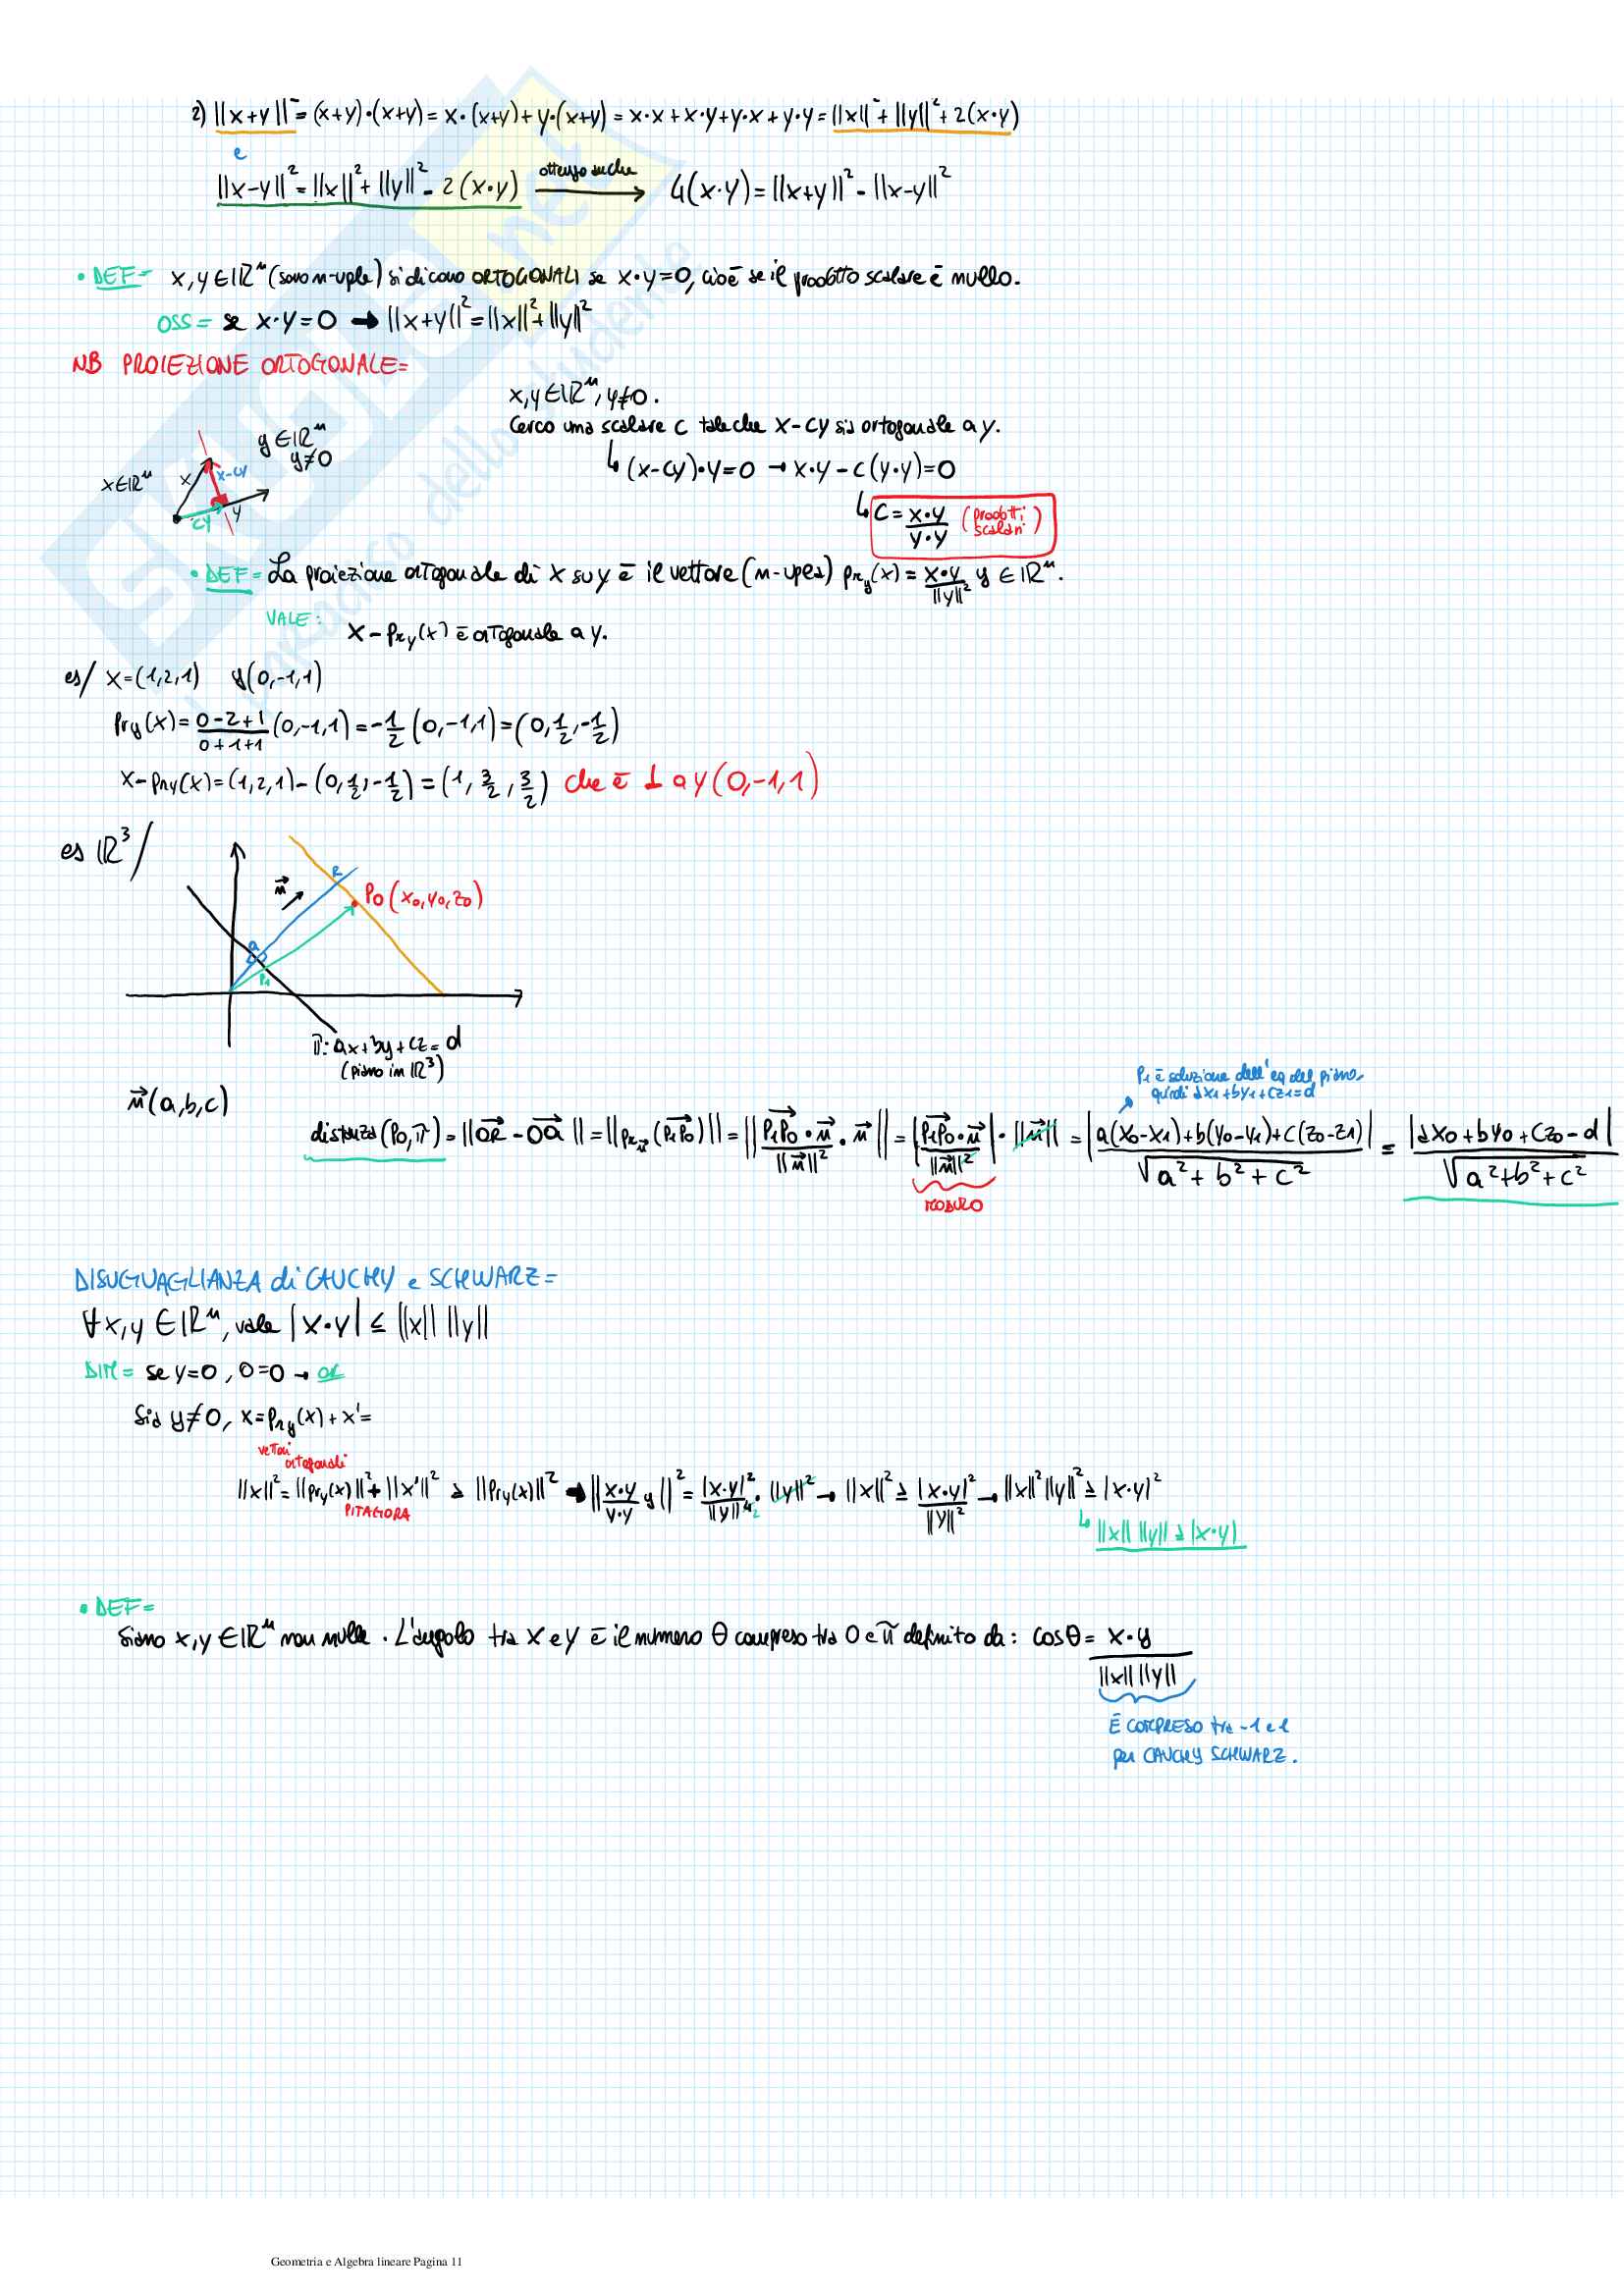 2) ||x+y||² = (x+y)·(x+y) = x·(x+y) + y·(x+y) = x·x + x·y + y·x + y·y = ||x||² + ||y||² + 2(x·y)
e
||x-y||² = ||x||² + ||y||² - 2(x·y) ottengo anche → 4(x·y) = ||x+y||² - ||x-y||²
• DEF= x,y ∈ ℝⁿ (sono n-uple) si dicono ORTOGONALI se x·y=0, cioè se il prodotto scalare è nullo.
OSS= se x·y=0 → ||x+y||² = ||x||² + ||y||²
NB PROIEZIONE ORTOGONALE=
x,y ∈ ℝⁿ, y≠0.
Cerco uno scalare c tale che x-cy sia ortogonale a y.
↳ (x-cy)·y=0 → x·y - c(y·y)=0
↳ c = x·y / y·y (prodotti scalari)
y ∈ ℝⁿ
y≠0
x ∈ ℝⁿ x x-cy
cy y
• DEF= La proiezione ortogonale di x su y è il vettore (n-upla) pr_y(x) = x·y / ||y||² y ∈ ℝⁿ.
VALE: x - pr_y(x) è ortogonale a y.
es/ x=(1,2,1) y(0,-1,1)
pr_y(x) = 0-2+1 / 0+1+1 (0,-1,1) = -1/2 (0,-1,1) = (0, 1/2, -1/2)
x - pr_y(x) = (1,2,1) - (0, 1/2, -1/2) = (1, 3/2, 3/2) che è ⊥ a y(0,-1,1)
es ℝ³/
n⃗ R P₀(x₀,y₀,z₀)
Q
P₁
π: ax+by+cz=d
(piano in ℝ³)
n⃗(a,b,c)
P₁ è soluzione dell'eq del piano,
quindi ax₁+by₁+cz₁=d
distanza(P₀,π) = ||OR⃗ - OQ⃗|| = ||pr_n⃗(P₁P₀⃗)|| = ||P₁P₀⃗·n⃗ / ||n⃗||² · n⃗|| = |P₁P₀⃗·n⃗ / ||n⃗||²| · ||n⃗|| = |a(x₀-x₁)+b(y₀-y₁)+c(z₀-z₁)| / √a²+b²+c² = |ax₀+by₀+cz₀-d| / √a²+b²+c²
MODULO
DISUGUAGLIANZA di CAUCHY e SCHWARZ=
∀x,y ∈ ℝⁿ, vale |x·y| ≤ ||x|| ||y||
DIM= se y=0, 0=0 → OK
Sia y≠0, x=pr_y(x)+x'=
vettori
ortogonali
||x||² = ||pr_y(x)||² + ||x'||² ≥ ||pr_y(x)||² → ||x·y / y·y y||² = |x·y|² / ||y||⁴² · ||y||² → ||x||² ≥ |x·y|² / ||y||² → ||x||² ||y||² ≥ |x·y|²
PITAGORA
↳ ||x|| ||y|| ≥ |x·y|
• DEF=
Siano x,y ∈ ℝⁿ non nulle. L'angolo tra x e y è il numero θ compreso tra 0 e π definito da: cosθ = x·y / ||x|| ||y||
È COMPRESO tra -1 e 1
per CAUCHY SCHWARZ.
Geometria e Algebra lineare Pagina 11